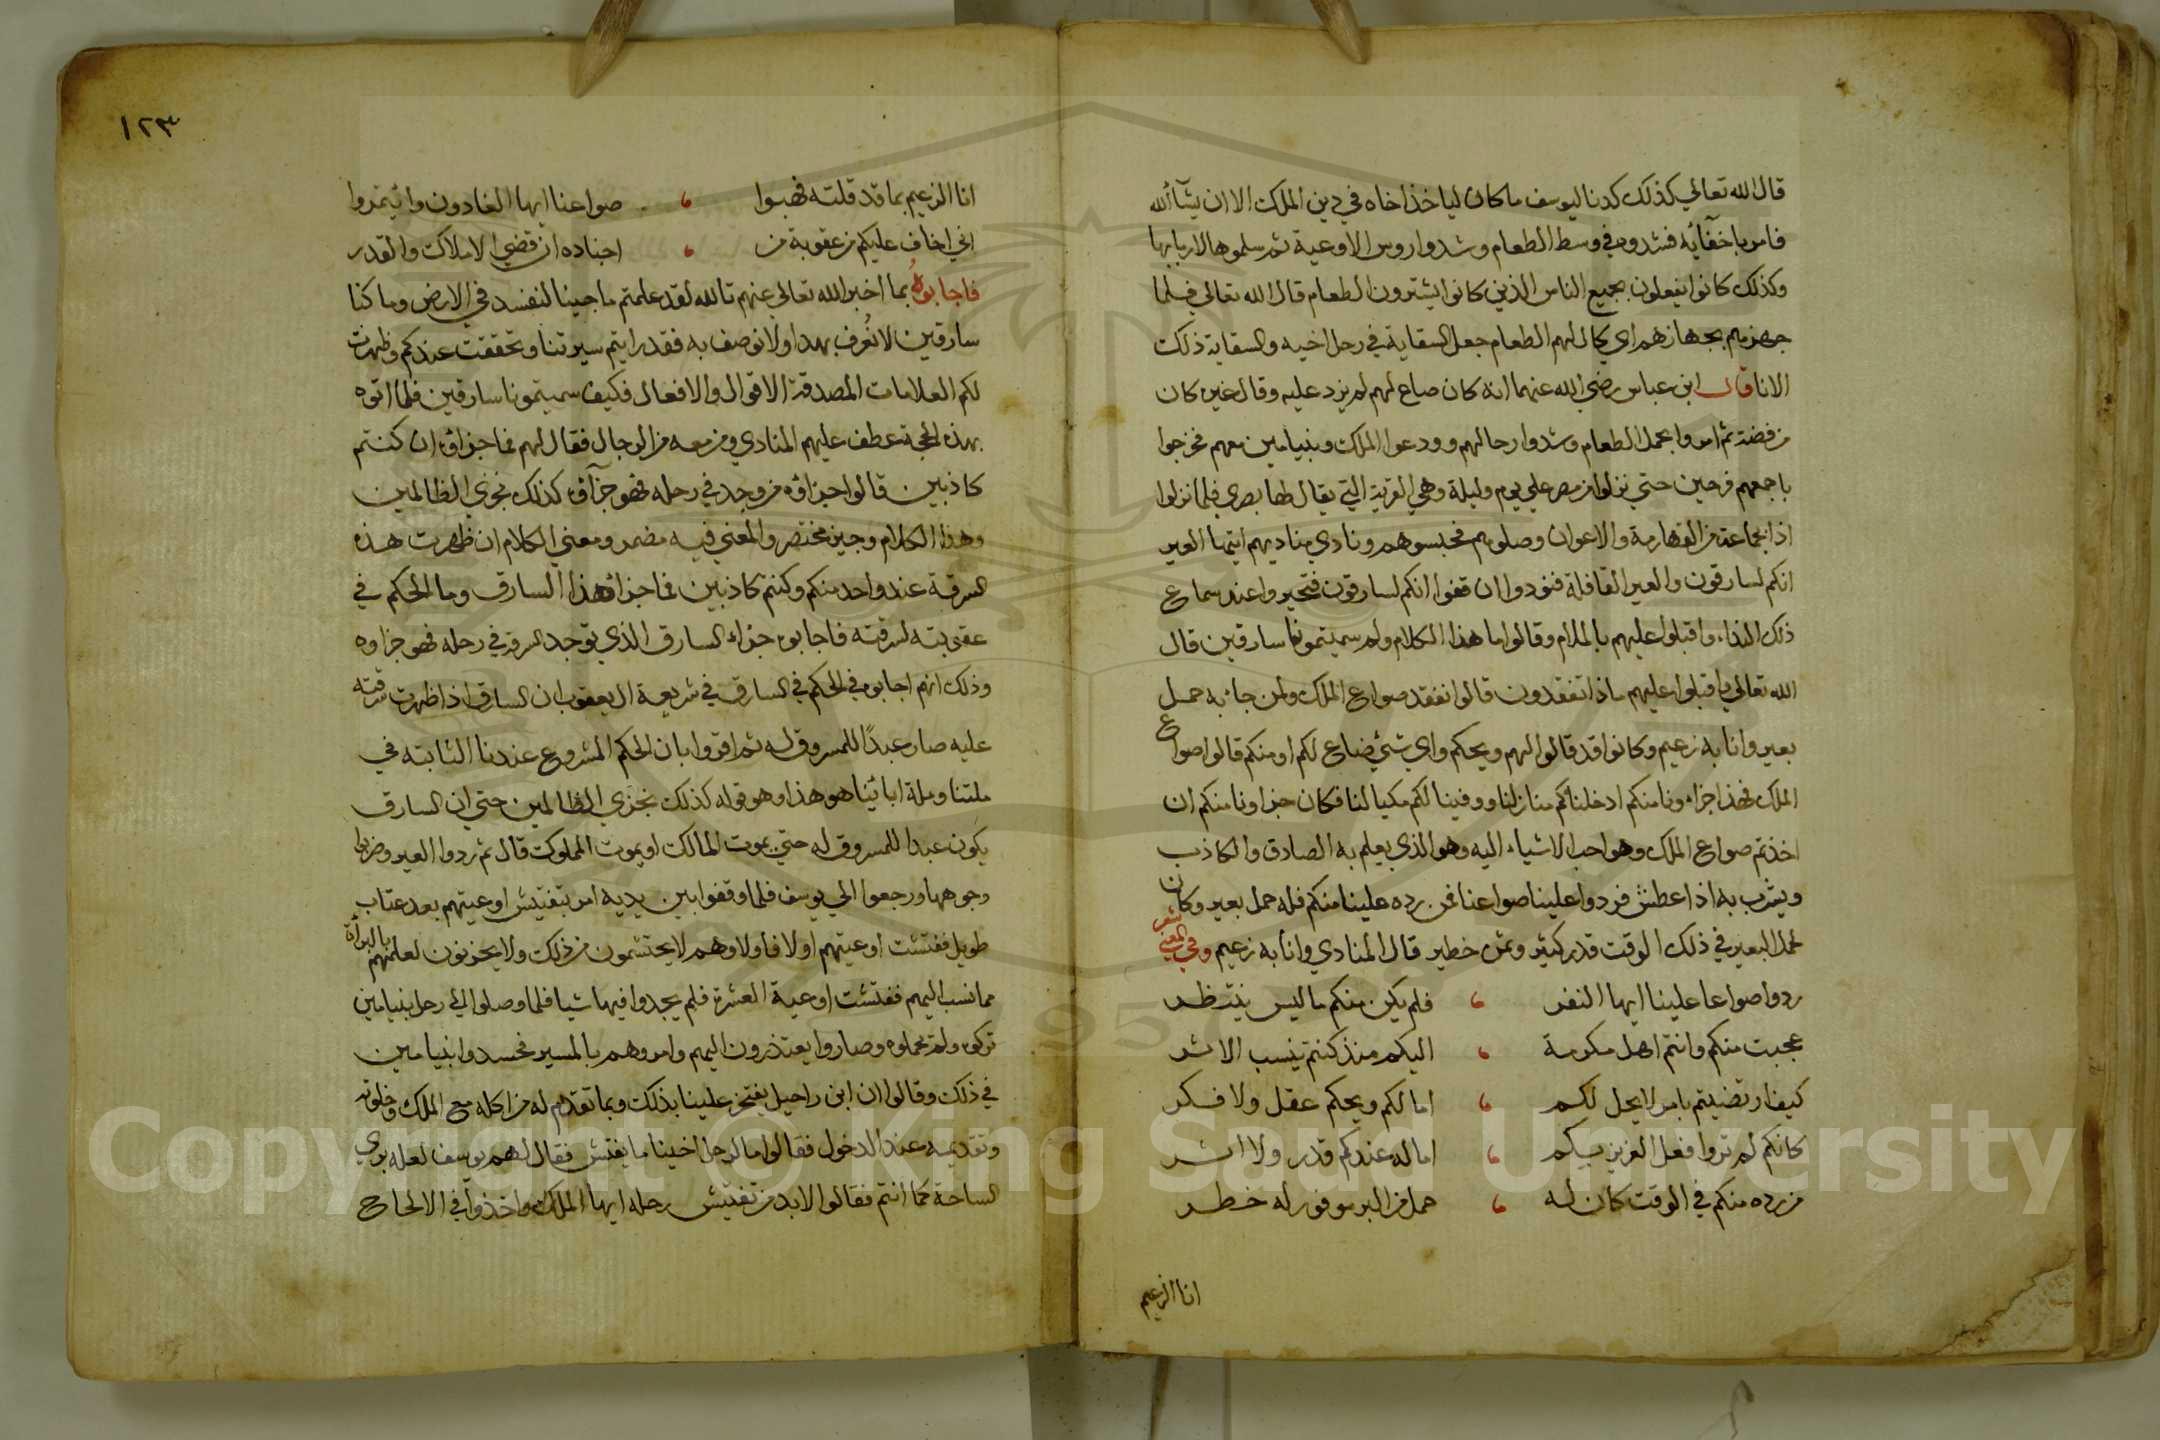 قال الله تعالي كذلك كدنا ليوسف ما كان لياخذ اخاه في دين الملك الا ان يشآ الله
فامر باخفآئه فشدوه في وسط الطعام وشدوا روس الاوعية ثم سلموها لاربابها
وكذلك كانوا يفعلون بجميع الناس الذين كانوا يشترون الطعام قال الله تعالي فلما
جهزهم بجهازهم اي كال لهم الطعام جعل السقاية في رحل اخيه والسقاية ذلك
الانا قال ابن عباس رضي الله عنهما انه كان صاع لهم لم يزد عليه وقال غيره كان
من فضة ثم امروا بحمل الطعام وشدوا رحالهم وودعوا الملك وبنيامين معهم فخرجوا
باجمعهم فرحين حتي نزلوا من مصر علي يوم وليلة وهي القرية التي يقال لها بصري فلما نزلوا
اذا بجماعة من القهارمة والاعوان وصلوهم فحبسوهم ونادي مناديهم ايتها العير
انكم لسارقون والعير القافلة فنودوا ان قفوا انكم لسارقون فتحيروا عند سماع
ذلك الندآء واقبلوا عليهم بالملام وقالوا ما هذا الكلام ولم سميتمونا سارقين قال
الله تعالي واقبلوا عليهم ماذا تفقدون قالوا نفقد صواع الملك ولمن جآء به حمل
بعير وانا به زعيم وكانوا قد قالوا لهم ويحكم واي شيء ضاع لكم او منكم قالوا صواع
الملك فهذا جزاؤنا منكم ادخلناكم منازلنا ووفينا لكم مكيالنا فكان جزاونا منكم ان
اخذتم صواع الملك وهو احب الاشياء اليه وهو الذي يعلم به الصادق والكاذب
ويشرب به اذا عطش فردوا علينا صواعنا فمن رده علينا منكم فله حمل بعير وكان
لحمل البعير في ذلك الوقت قدر كثير وثمن خطير قال المنادي وانا به زعيم وفي المعني شعر
ردوا صواعا علينا ايها النفر ، فلم يكن منكم ما ليس ينتظر
عجبت منكم وانتم اهل مكرمة ، اليكم منذ كنتم ينسب الاثر
كيف ارتضيتم بامر لا يحل لكم ، اما لكم ويحكم عقل ولا فكر
كانكم لم تروا فعل العزيز بكم ، اما له عندكم قدر ولا اثر
من رده منكم في الوقت كان له ، حمل من البر موفور له خطر
انا الزعيم
١٢٣
انا الزعيم بما قد قلته فهبوا ، صواعنا ايها الغادون وايتمروا
اني اخاف عليكم من عقوبة من ، اجناده ان قضي الاملاك والقدر
فاجابوهُ بما اخبر الله تعالي عنهم تالله لقد علمتم ما جينا لنفسد في الارض وما كنا
سارقين لا نُعرف بهدا ولا نوصف به فقد رايتم سيرتنا وتحققت عندكم وظهرت
لكم العلامات المصدقة الاقوال والافعال فكيف سميتمونا سارقين فلما اتوه
بهذه الحجة عطف عليهم المنادي ومن معه من الرجال فقال لهم فما جزاؤه ان كنتم
كاذبين قالوا جزاؤه من وجد في رحله فهو جزآؤه كذلك نجزي الظالمين
وهذا الكلام وجيز مختصر والمعني فيه مضمر ومعني الكلام ان ظهرت هذه
السرقة عند واحد منكم وكنتم كاذبين فما جزاؤ هذا السارق وما الحكم في
عقوبته لسرقته فاجابوه جزاء السارق الذي توجد السرقة في رحله فهو جزاوه
وذلك انهم اجابوه في الحكم في السارق في شريعة ال يعقوب ان السارق اذا ظهرت سرقته
عليه صار عبدًا للمسروق له ثم اقروا بان الحكم المشروع عندنا الثابته في
ملتنا وملة ابائنا هو هذا وهو قوله كذلك نجزي الظالمين حتي ان السارق
يكون عبدا للمسروق له حتي يموت المالك او يموت المملوك قال ثم ردوا العير وضربوا
وجوهها ورجعوا الي يوسف فلما وقفوا بين يديه امر بتفتيش اوعيتهم بعد عتاب
طويل ففتشت اوعيتهم اولا فاولا وهم لا يحتشمون من ذلك ولا يحزنون لعلمهم بالبرأة
مما نسب اليهم ففتشت اوعية العشرة فلم يجدوا فيها شيا فلما وصلوا الي رحل بنيامين
تركوه ولم يحملوه وصاروا يعتذرون اليهم وامروهم بالمسير فحسدوا بنيامين
في ذلك وقالوا ان ابن راحيل يفتخر علينا بذلك وبما تقدم له من اكله مع الملك وخلوته
وتقديمه عند الدخول فقالوا ما لرحل اخينا ما يفتش فقال لهم يوسف لعله بري
الساحة كما انتم فقالوا لابد من تفتيش رحله ايها الملك واخذوا في الالحاح
Copyright © King Saud University
1957